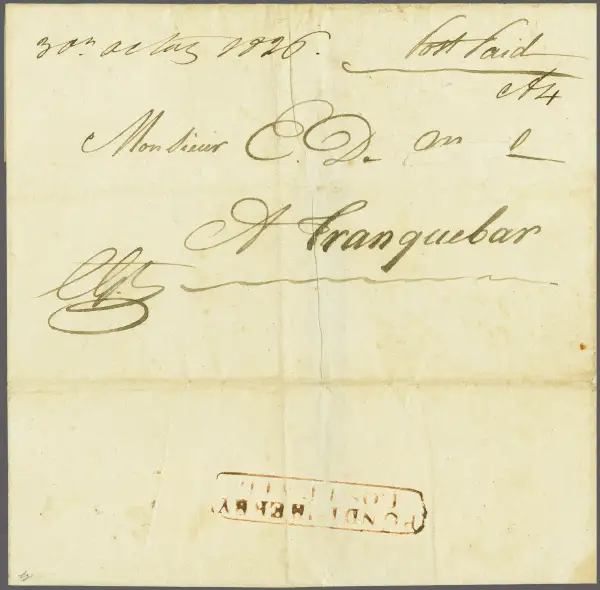 30th octbr 1826.
Post Paid
A4
Monsieur E. D.
A Tranquebar
PONDICHERRY
POST PAID